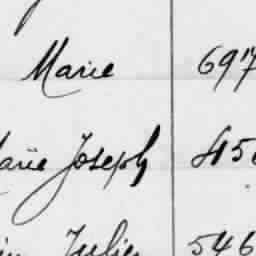 Marie 697
Marie Joseph 456
Julie 546